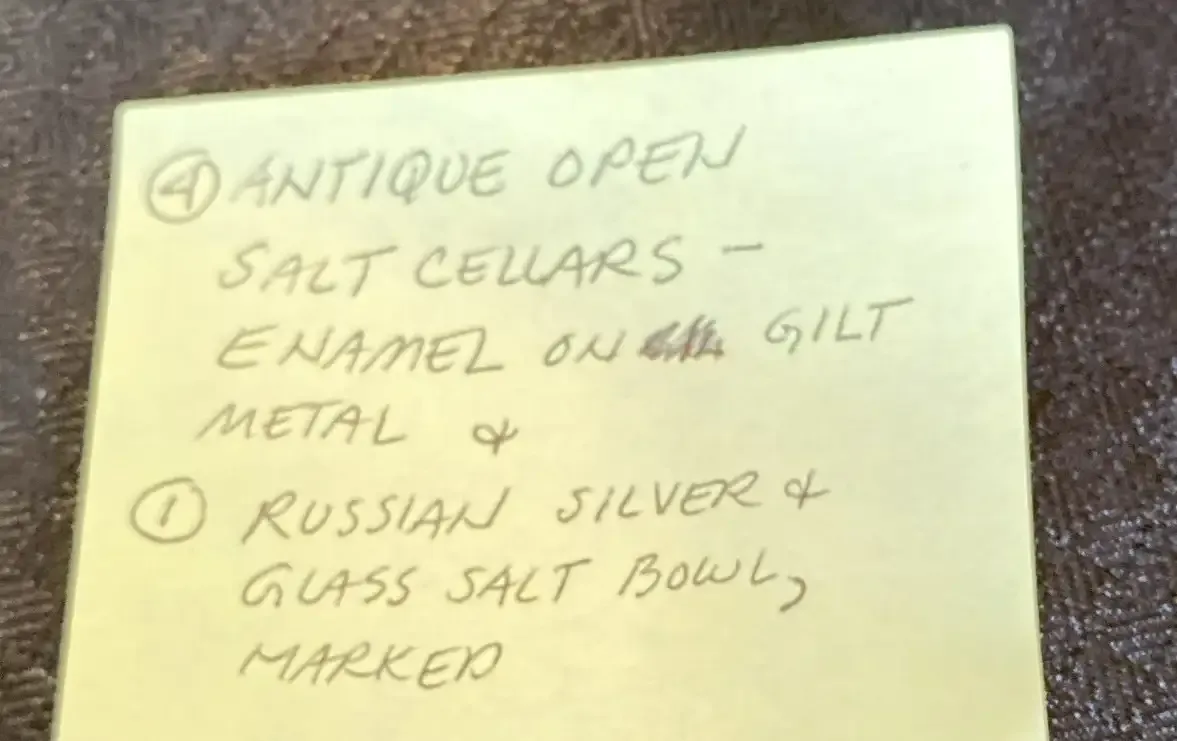 ④ ANTIQUE OPEN
SALT CELLARS —
ENAMEL ON GILT
METAL &
① RUSSIAN SILVER &
GLASS SALT BOWL,
MARKED